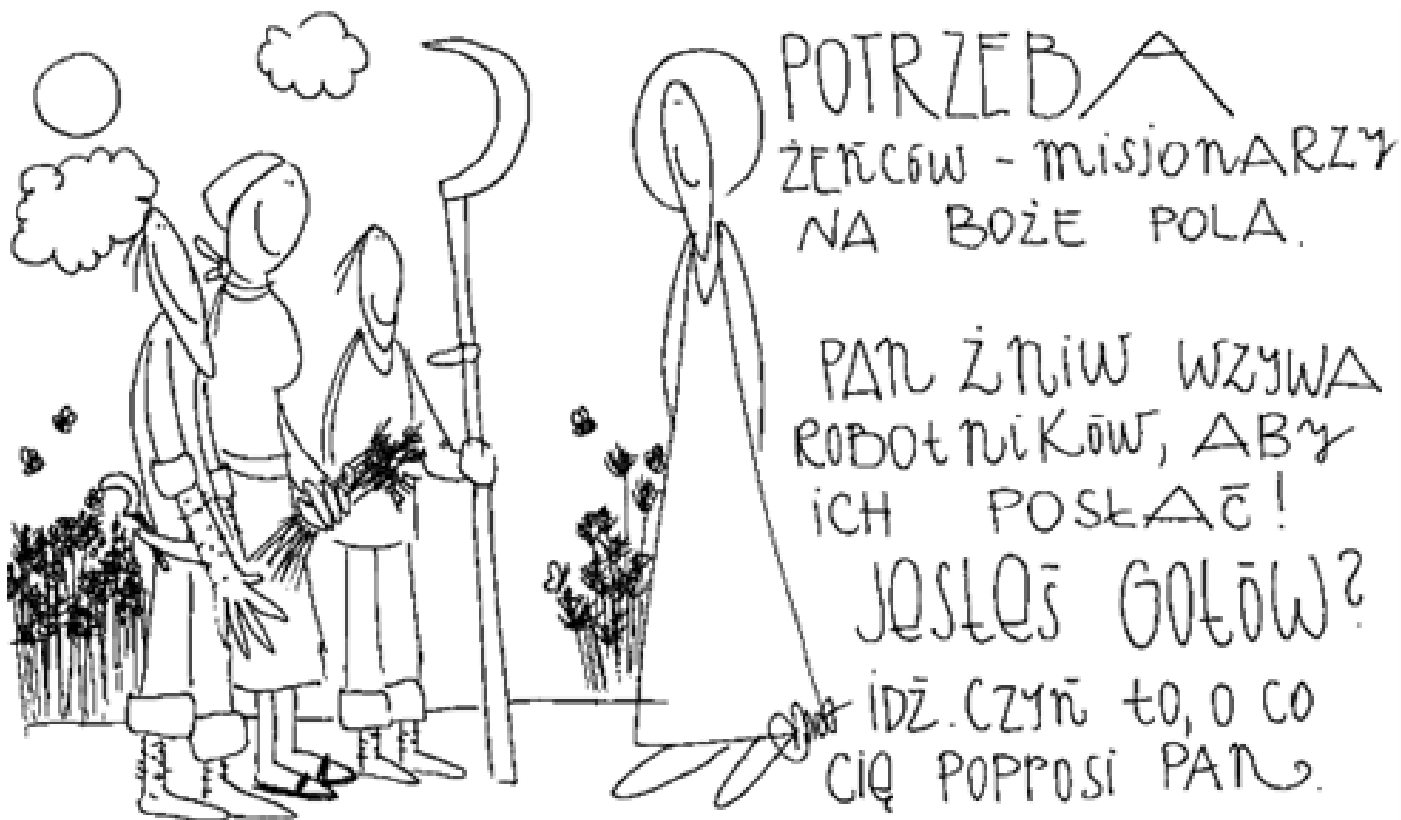 POTRZEBA
ŻEŃCÓW - MISJONARZY
NA BOŻE POLA.
PAN ŻNIW WZYWA
ROBOTNIKÓW, ABY
ICH POSŁAĆ!
JESTEŚ GOTÓW?
IDŹ. CZYŃ TO, O CO
CIĘ POPROSI PAN.